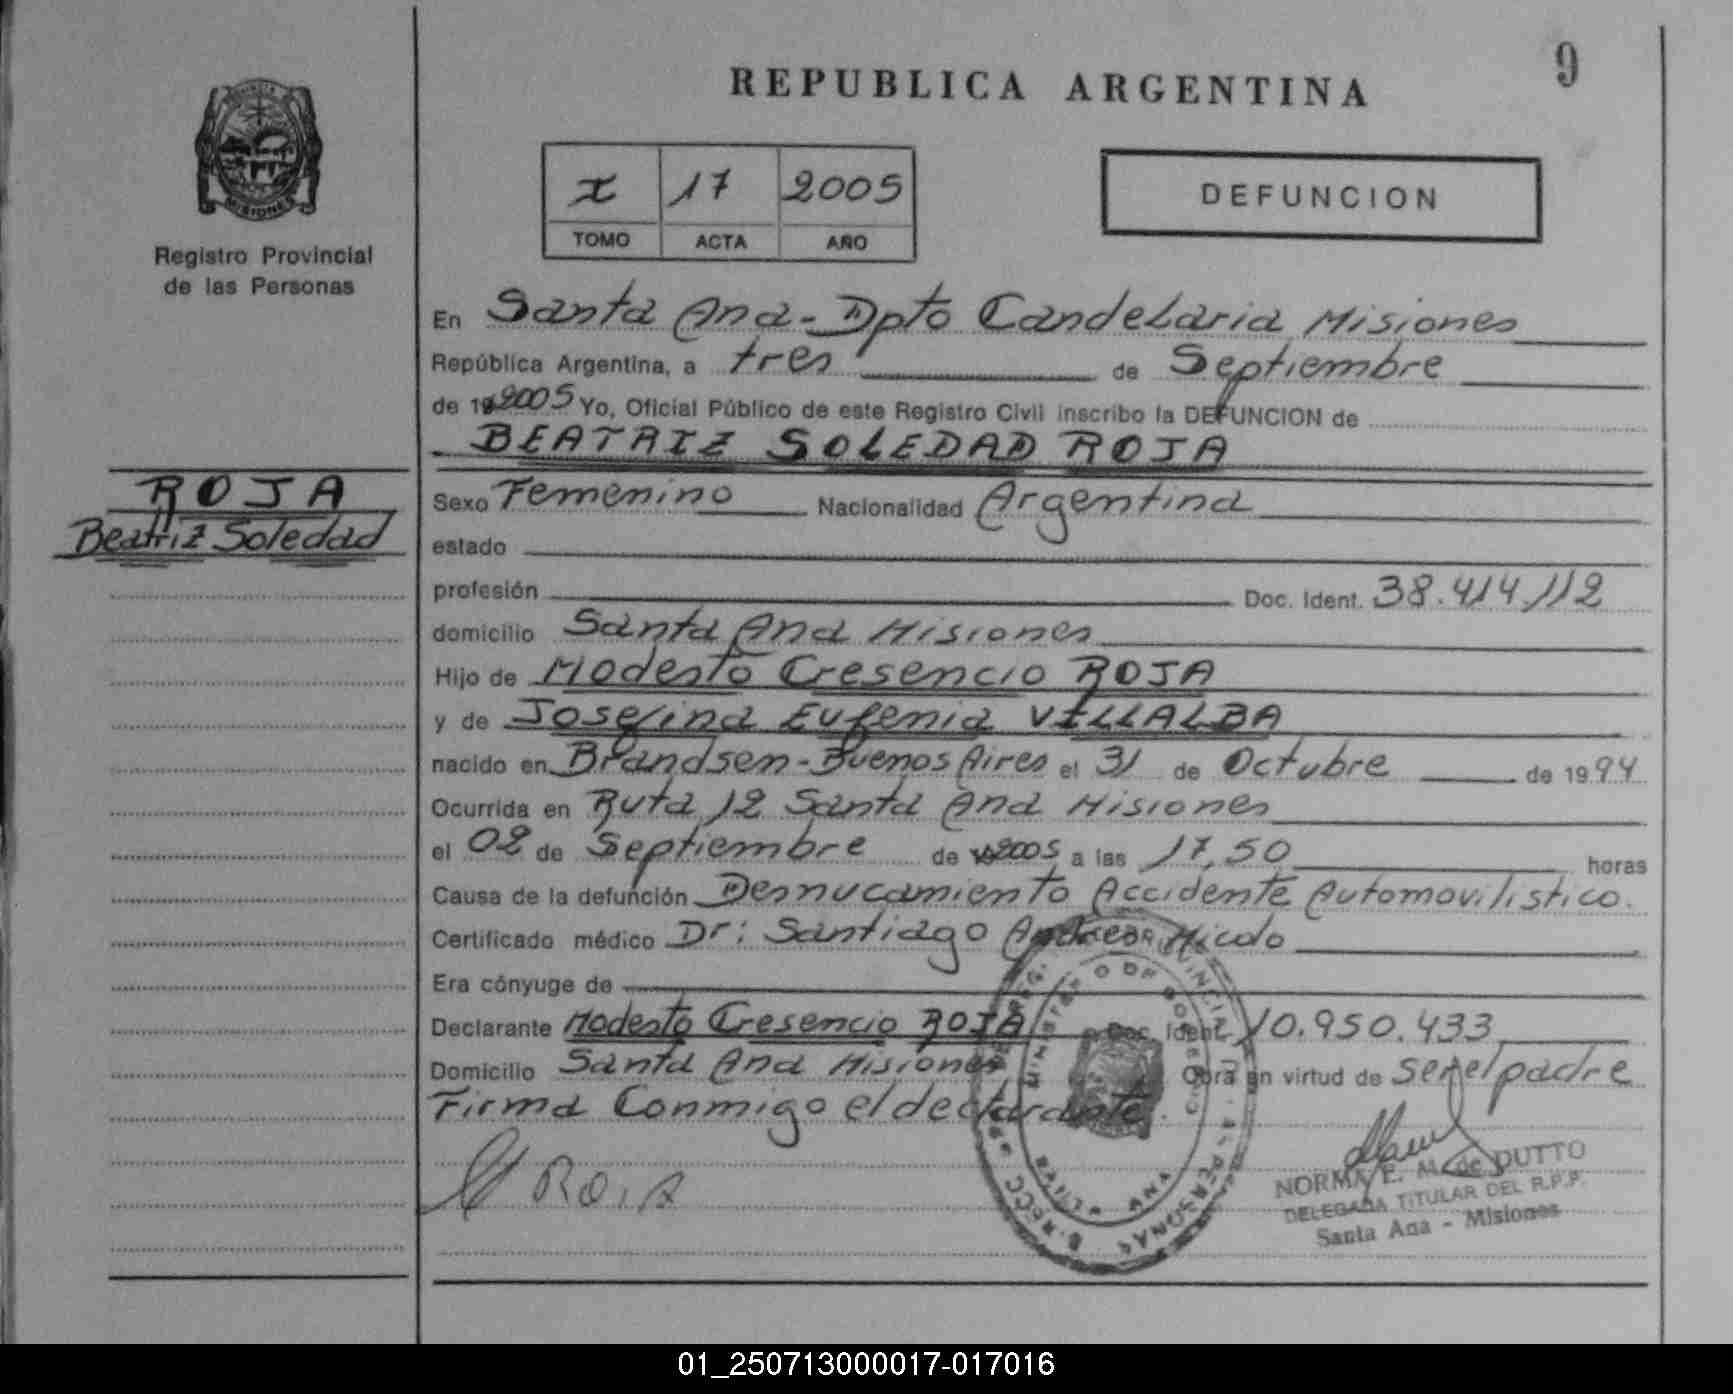 REPUBLICA ARGENTINA
9
MISIONES
Registro Provincial
de las Personas
x 17 2005
TOMO ACTA AÑO
DEFUNCION
En Santa Ana - Dpto Candelaria Misiones
República Argentina, a tres de Septiembre
de 19 2005 Yo, Oficial Público de este Registro Civil inscribo la DEFUNCION de
BEATRIZ SOLEDAD ROJA
ROJA
Beatriz Soledad
Sexo Femenino Nacionalidad Argentina
estado
profesión Doc. Ident. 38.414.112
domicilio Santa Ana Misiones
Hijo de Modesto Cresencio ROJA
y de Josefina Eufemia VILLALBA
nacido en Brandsen - Buenos Aires el 31 de Octubre de 1994
Ocurrida en Ruta 12 Santa Ana Misiones
el 02 de Septiembre de 2005 a las 17,50 horas
Causa de la defunción Desnucamiento Accidente Automovilistico.
Certificado médico Dr: Santiago Andres Nicolo
Era cónyuge de
Declarante Modesto Cresencio ROJA Doc. Ident. 10.950.433
Domicilio Santa Ana Misiones Obra en virtud de ser el padre
Firma Conmigo el declarante.
M Roja
NORMA E. M. de DUTTO
DELEGADA TITULAR DEL R.P.P.
Santa Ana - Misiones
MINISTERIO DE GOBIERNO
01_250713000017-017016